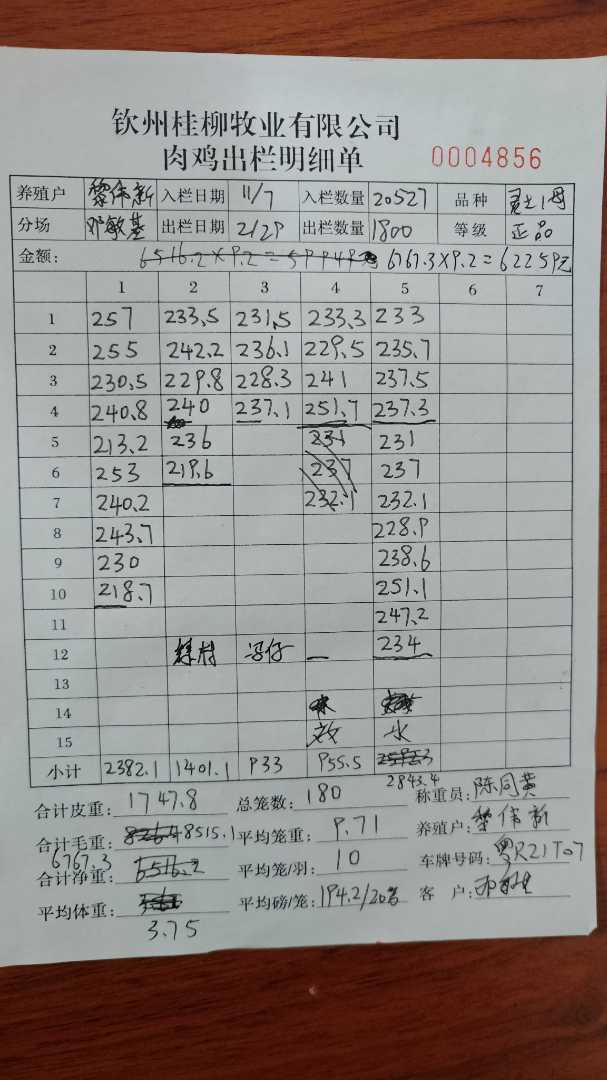 钦州桂柳牧业有限公司
肉鸡出栏明细单 0004856
养殖户 黎伟新 入栏日期 11/7 入栏数量 20527 品种
分场 邓敏基 出栏日期 2/29 出栏数量 1800 等级 正品
金额: 6516.2×9.2=59949元 6767.3×9.2=62259元
1 2 3 4 5 6 7
1 257 233.5 231.5 233.3 233
2 255 242.2 236.1 229.5 235.7
3 230.5 229.8 228.3 241 237.5
4 240.8 240 237.1 251.7 237.3
5 213.2 236 231 231
6 253 219.6 237 237
7 240.2 232.1 232.1
8 243.7 228.9
9 230 238.6
10 218.7 251.1
11 247.2
12 冯仔 234
13
14
15 水
小计 2382.1 1401.1 933 955.5
2843.4
合计皮重: 1747.8 总笼数: 180 称重员: 陈同黄
合计毛重: 8515.1 平均笼重: 9.71 养殖户: 黎伟新
6767.3
合计净重: 6516.2 平均笼/羽: 10 车牌号码: 粤R21T07
平均体重: 平均磅/笼: 194.2/20 客户:
3.75